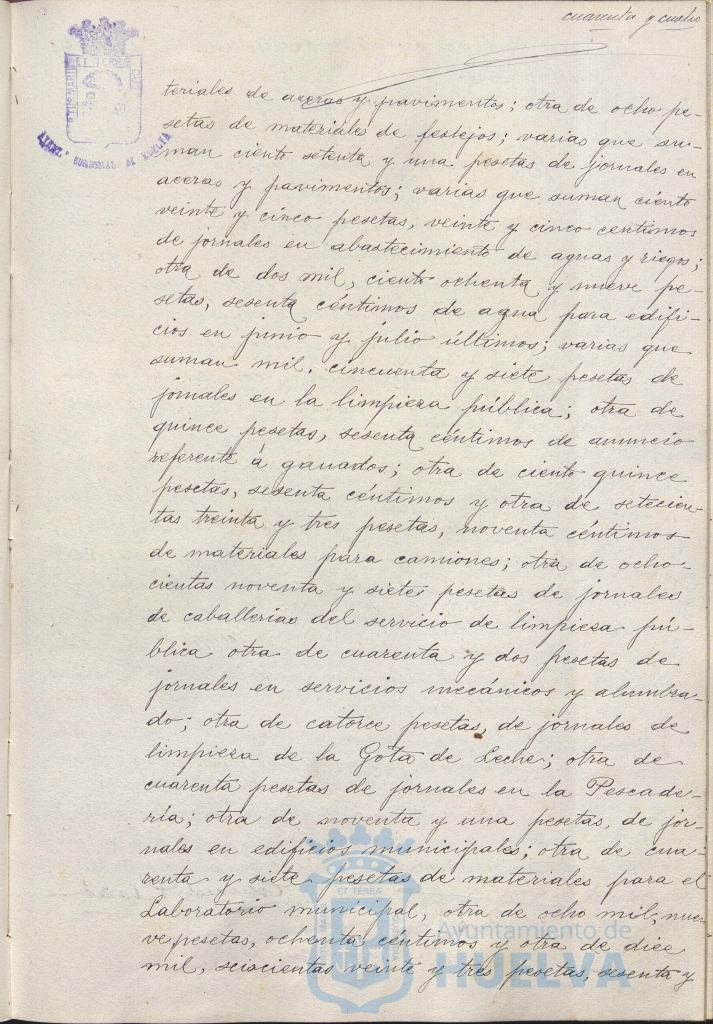 cuarenta y cuatro
teriales de aceras y pavimentos; otra de ocho pe-
setas de materiales de festejos; varias que su-
man ciento setenta y una pesetas de jornales en
aceras y pavimentos; varias que suman ciento
veinte y cinco pesetas, veinte y cinco centimos
de jornales en abastecimiento de aguas y riegos;
otra de dos mil, ciento ochenta y nueve pe-
setas, sesenta céntimos de agua para edifi-
cios en junio y julio últimos; varias que
suman mil, cincuenta y siete pesetas de
jornales en la limpieza pública; otra de
quince pesetas, sesenta céntimos de anuncio
referente á ganados; otra de ciento quince
pesetas, sesenta céntimos y otra de setecien-
tas treinta y tres pesetas, noventa céntimos
de materiales para camiones; otra de ocho-
cientas noventa y siete pesetas de jornales
de caballerias del servicio de limpieza pú-
blica otra de cuarenta y dos pesetas de
jornales en servicios mecánicos y alumbra-
do; otra de catorce pesetas, de jornales de
limpieza de la Gota de Leche; otra de
cuarenta pesetas de jornales en la Pescade-
ría; otra de noventa y una pesetas, de jor-
nales en edificios municipales; otra de cua-
renta y siete pesetas de materiales para el
Laboratorio municipal, otra de ocho mil, nue-
ve pesetas, ochenta céntimos y otra de diez
mil, seiscientas veinte y tres pesetas, sesenta y
ET TERRÆ
Ayuntamiento de
HUELVA